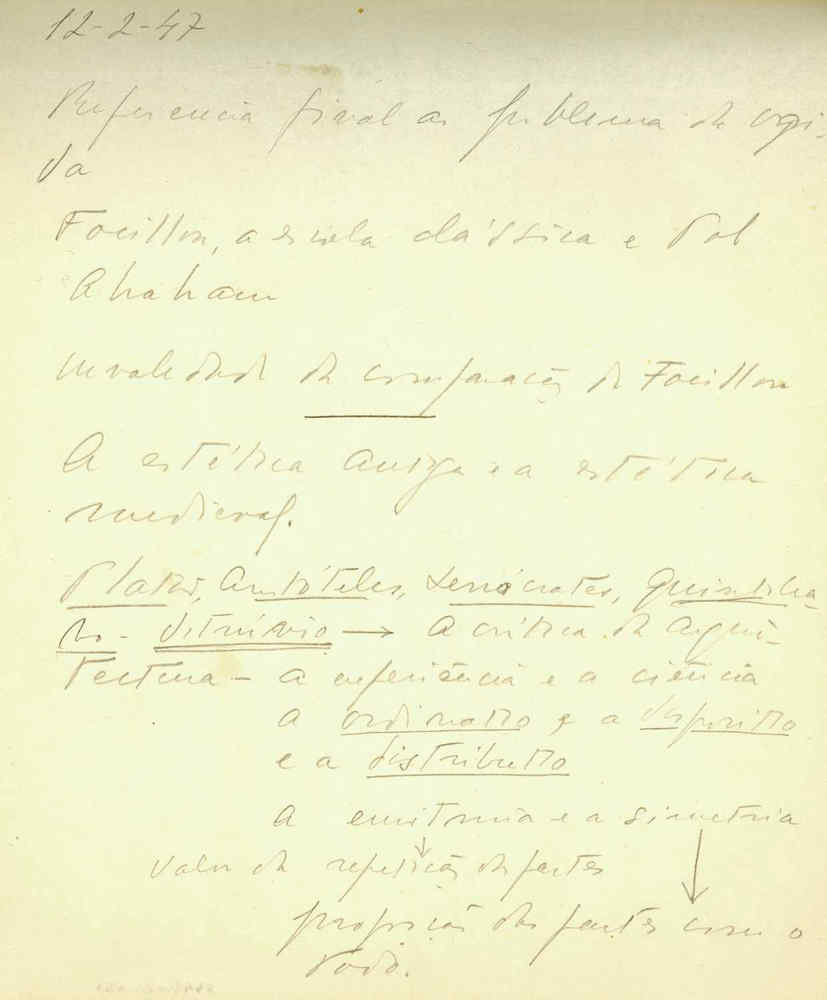 12-2-47
Referencia final ao problema da ogi-
va
Focillon, a escola clássica e Pol
Abraham
Invalidade da comparação de Focillon
A estética antiga e a estética
medieval.
Platão, Aristóteles, Xenócrates, Quintilia-
no - Vitrúvio → A crítica da arqui-
tectura - a experiência e a ciência
a ordinatio e a dispositio
e a distributio
a euritmia e a simetria
valor da repetição das partes
proporção das partes com o
todo.